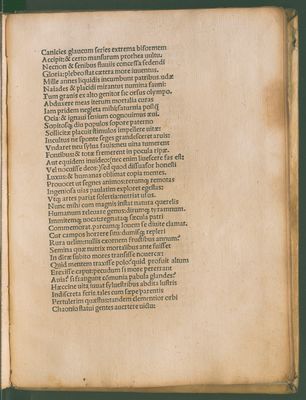 Canicies glaucum series extrema biformem
Accipit: & certo mansurum prothea uultu.
Necnon & senibus fluuiis concessa sedendi
Gloria: plebro stat cætera more iuuentus.
Mille amnes liquidis incumbunt patribus. udæ
Naiades & placidi mirantur numina fauni:
Tum grauis ex alto genitor sic orsus olympo.
Abduxere meas iterum mortalia curas
Iam pridem neglecta mihi: saturnia postq̃
Ocia: & ignaui senium cognouimus æui.
Sopitosq; diu populos sopore paterno
Sollicitæ placuit stimulos impellere uitæ:
Incultis ne sponte seges grandesceret aruis:
Vndaret neu sylua fauis: neu uina tumerent
Fontibus: & totæ fremerent in pocula ripæ.
Aut equidem inuideo: nec enim liuescere fas est
Vel nocuisse deos: sed quod dissuasor honesti
Luxus: & humanas oblimat copia mentes.
Prouocet ut segnes animos: rerumq; remotas
Ingeniosa uias paulatim exploret egestas:
Vtq; artes pariat solertia: nutriat usus.
Nunc mihi cum magnis instat natura querelis
Humanum releuare genus: dirumq; tyrannum.
Immitemq; uocat: regnataq; sæcula patri
Commemorat. parcumq; Iouem se diuite clamat.
Cur campos horrere situ: dumisq; repleri
Rura uelim: nullis exornem frudibus annum?
Semina quæ nutrix mortalibus ante fuisset
In diræ subito mores transisse nouercæ:
Quid mentem traxisse polo? quid profuit altum
Erexisse caput: pecudum si more pererrant
Auia? si frangunt cõmunia pabula glandes?
Hæccine uita iuuat syluestribus abdita lustris
Indiscreta feris. tales cum sæpe parentis
Pertulerim quæstus: tandem clementior orbi
Chaonio statui gentes auertere uictu: